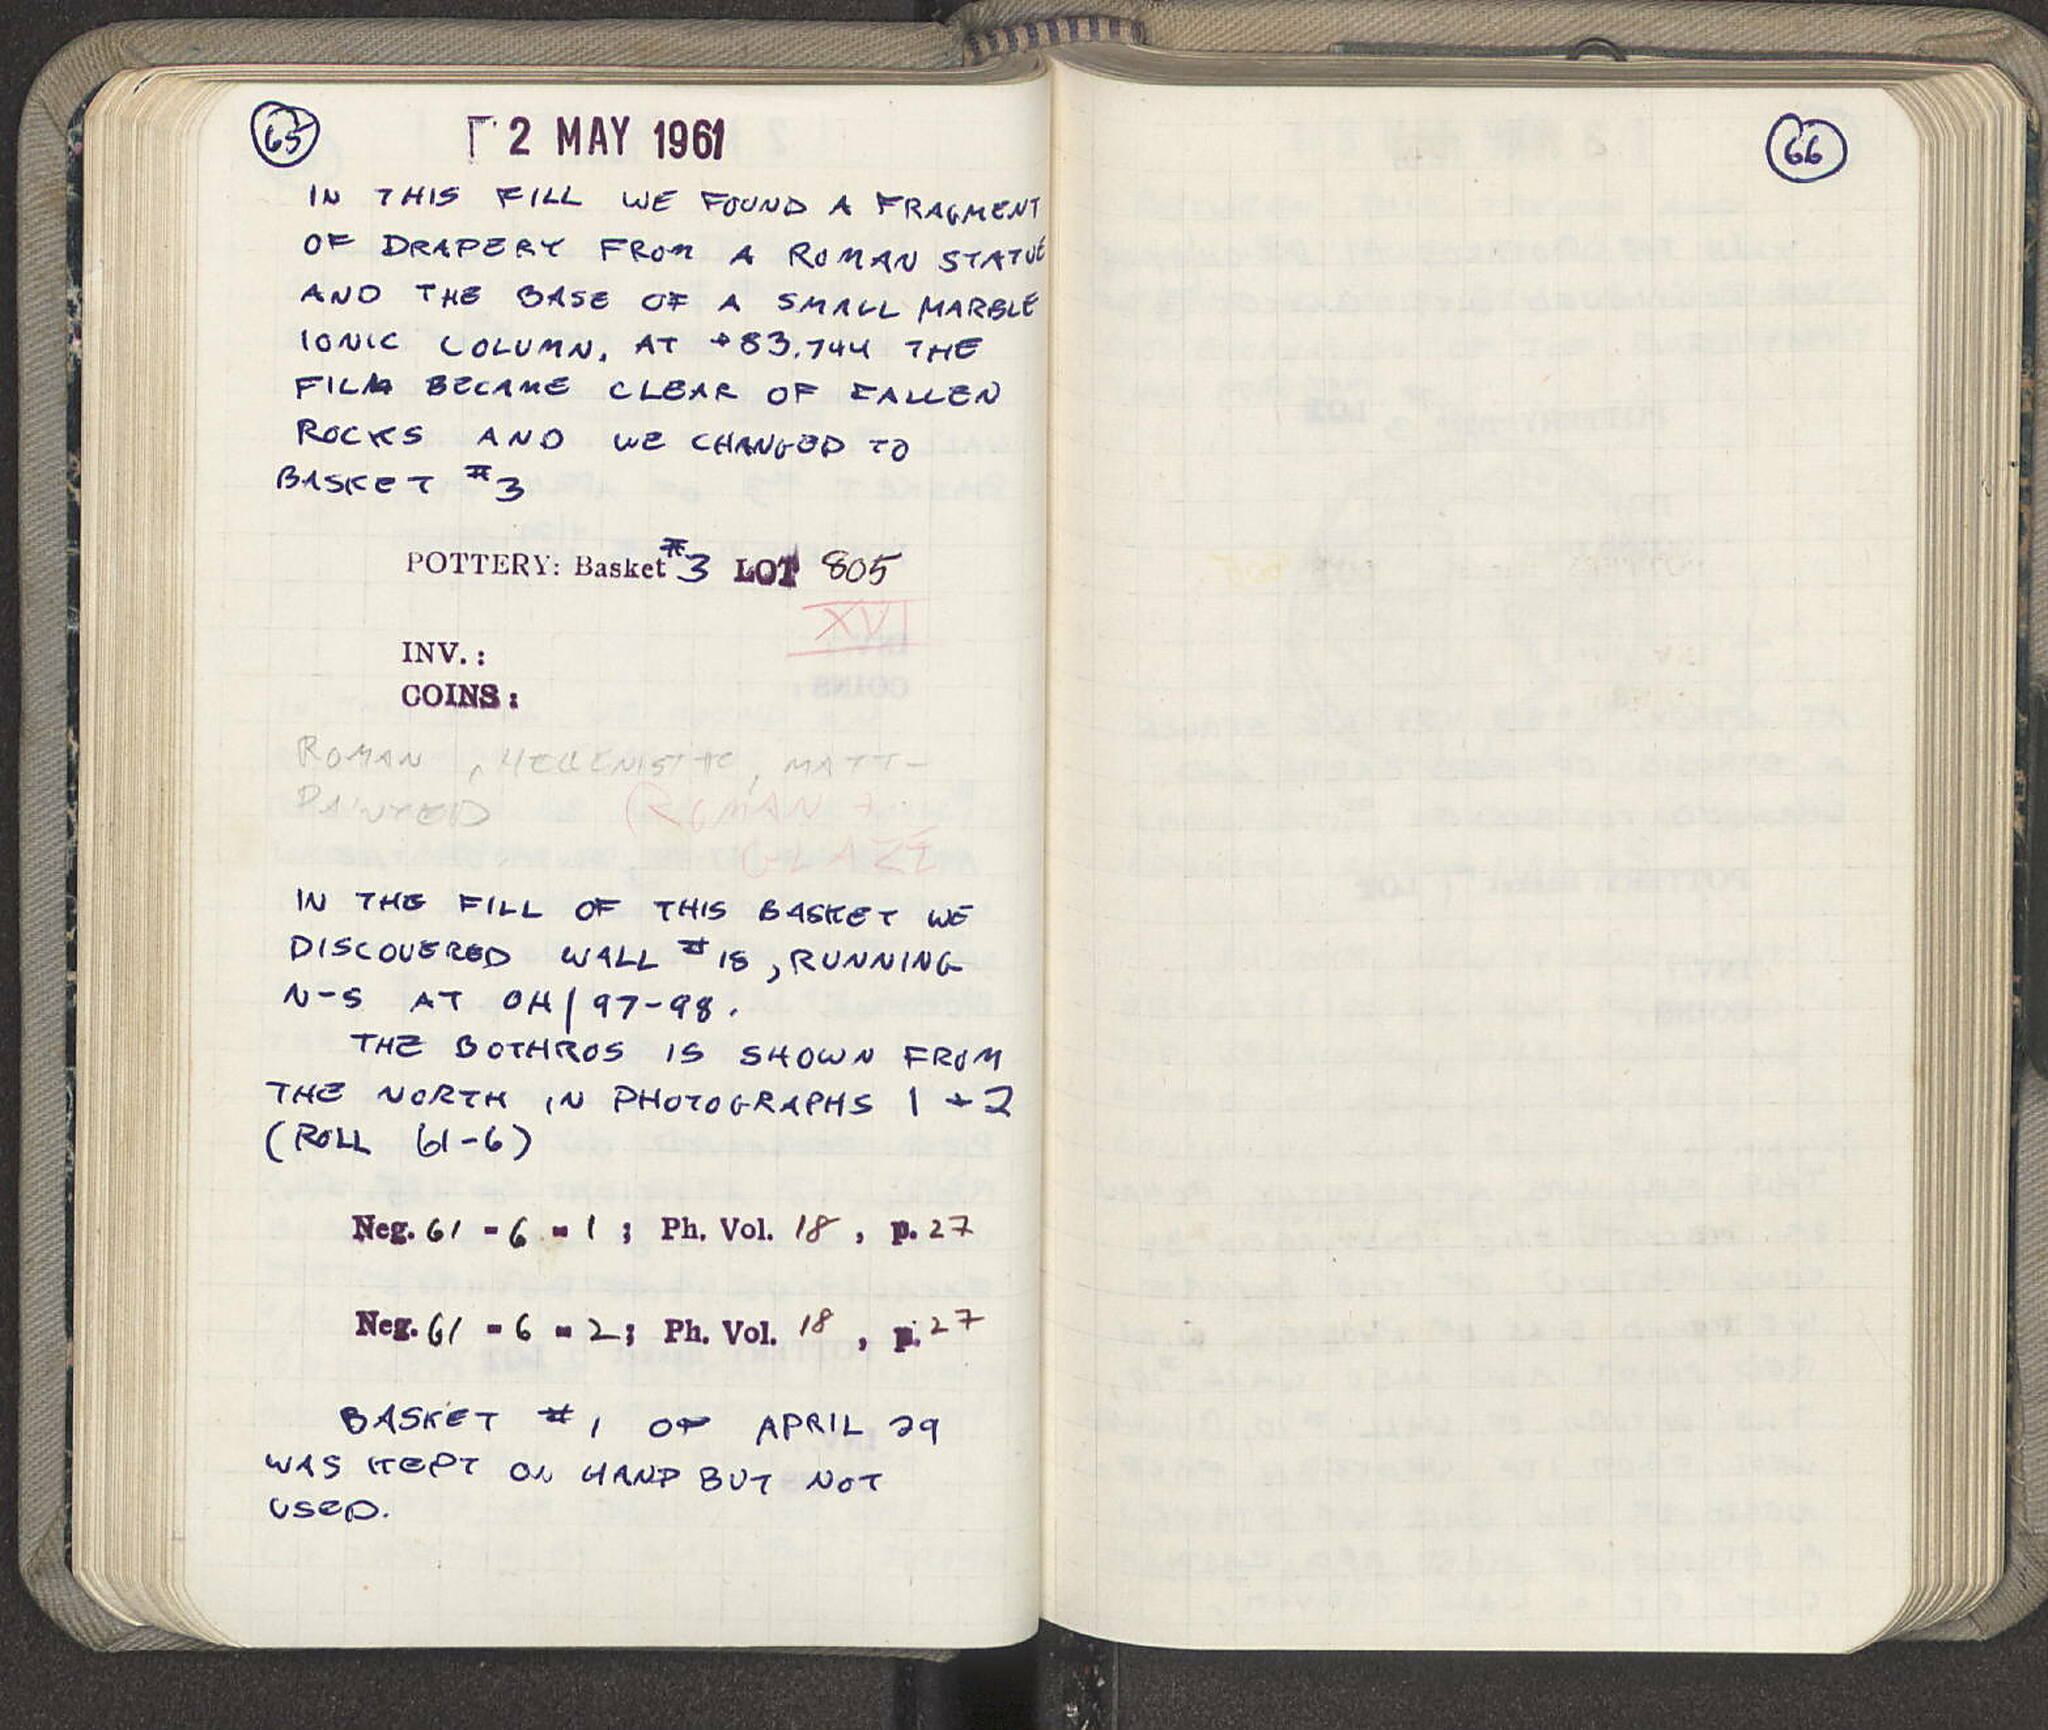 65
2 MAY 1961
IN THIS FILL WE FOUND A FRAGMENT
OF DRAPERY FROM A ROMAN STATUE
AND THE BASE OF A SMALL MARBLE
IONIC COLUMN. AT +83.744 THE
FILL BECAME CLEAR OF FALLEN
ROCKS AND WE CHANGED TO
BASKET #3
POTTERY: Basket #3 LOT 805
XVI
INV.:
COINS:
ROMAN, HELLENISTIC, MATT-
PAINTED
(ROMAN +
GLAZE
IN THE FILL OF THIS BASKET WE
DISCOVERED WALL #18, RUNNING
N-S AT OH/97-98.
THE BOTHROS IS SHOWN FROM
THE NORTH IN PHOTOGRAPHS 1 + 2
(ROLL 61-6)
Neg. 61 - 6 - 1; Ph. Vol. 18, p. 27
Neg. 61 - 6 - 2; Ph. Vol. 18, p. 27
BASKET #1 OF APRIL 29
WAS KEPT ON HAND BUT NOT
USED.
66